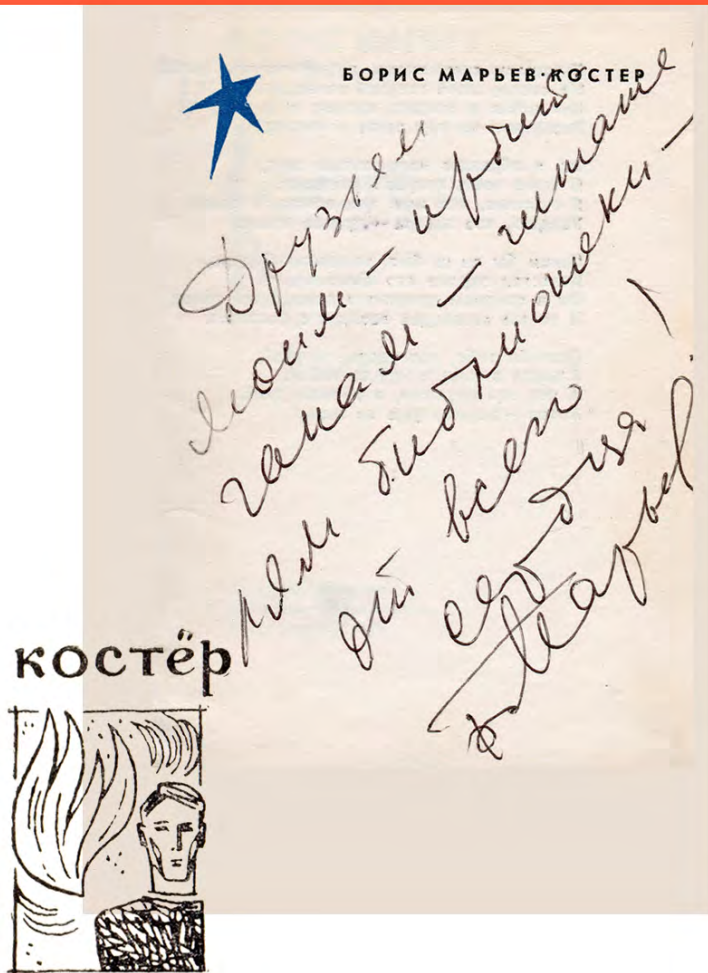 БОРИС МАРЬЕВ·КОСТЕР
Друзьям
моим – ирбит
чанам – читате
лям библиотеки –
от всего
сердца!
Б Марьев
костёр